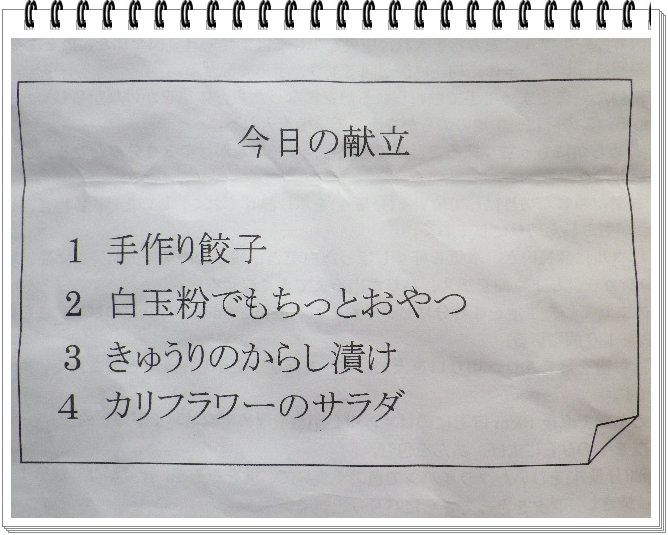 今日の献立
1 手作り餃子
2 白玉粉でもちっとおやつ
3 きゅうりのからし漬け
4 カリフラワーのサラダ